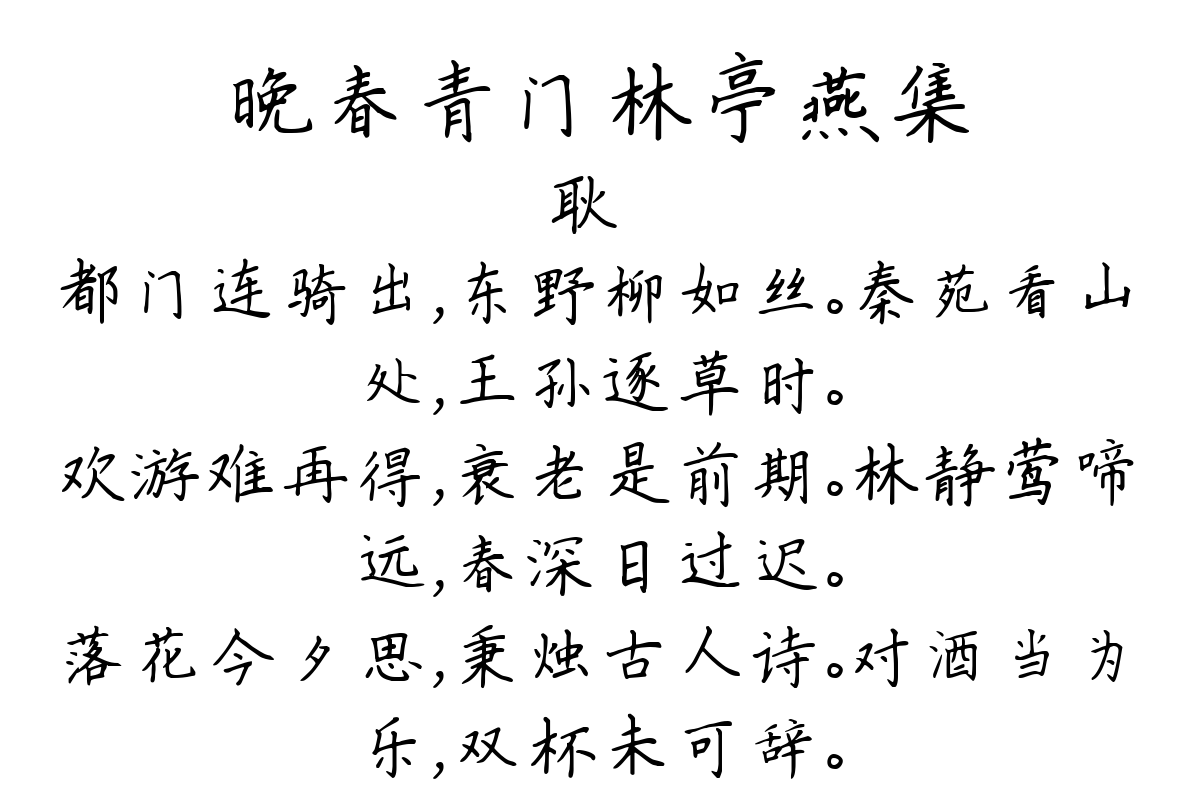 晚春青门林亭燕集
耿
都门连骑出,东野柳如丝。秦苑看山
处,王孙逐草时。
欢游难再得,衰老是前期。林静莺啼
远,春深日过迟。
落花今夕思,秉烛古人诗。对酒当为
乐,双杯未可辞。